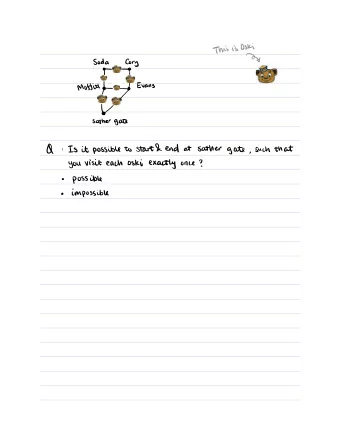 This is Oski
Soda Cory
Moffitt Evans
sather gate
Q : Is it possible to start & end at sather gate, such that
you visit each oski exactly once ?
• possible
• impossible